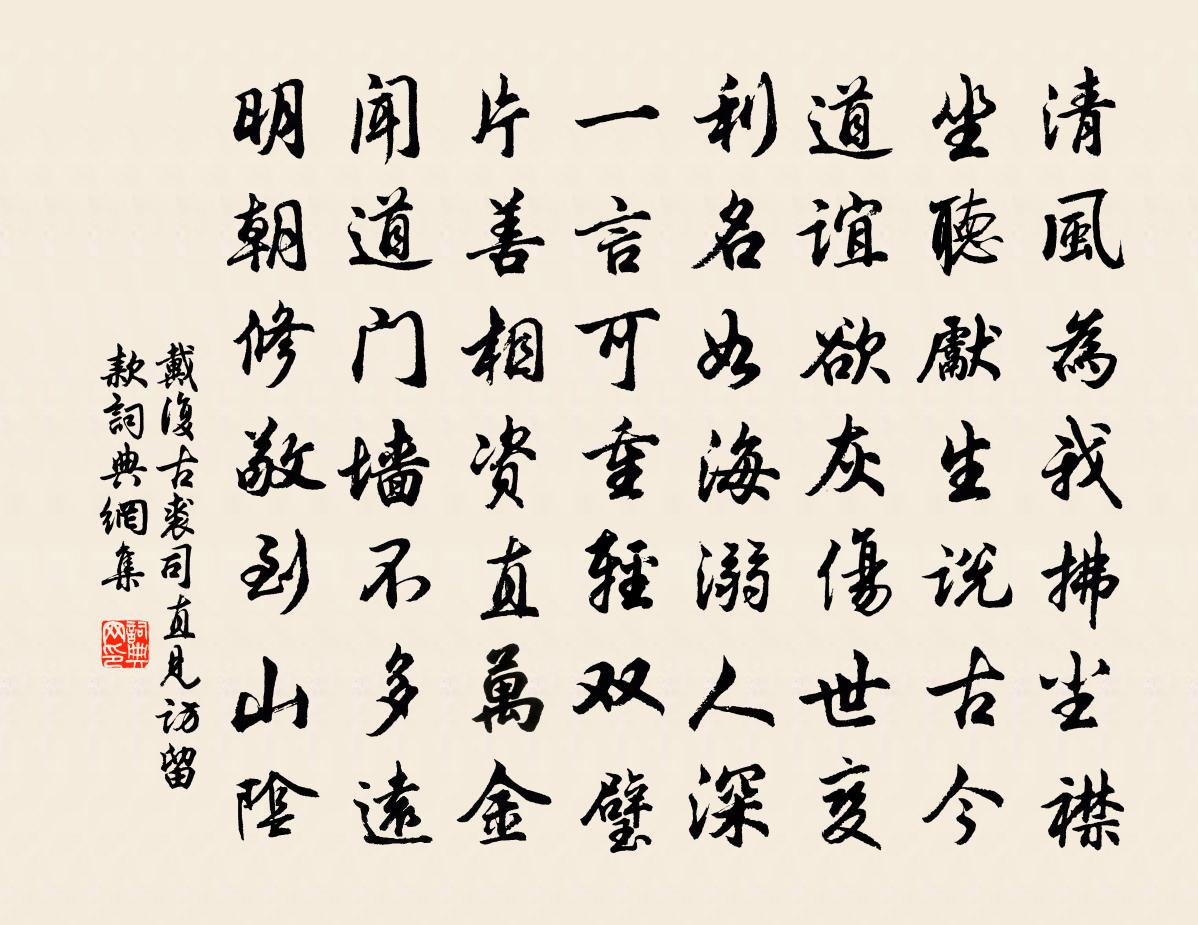 清風為我拂尘襟
坐聽獻生说古今
道誼欲灰傷世变
利名如海溺人深
一言可重輕双璧
片善相资直萬金
闻道门墙不多遠
明朝修敬到山陰
戴復古裘司直見访留
款詞典網集
詞典网印